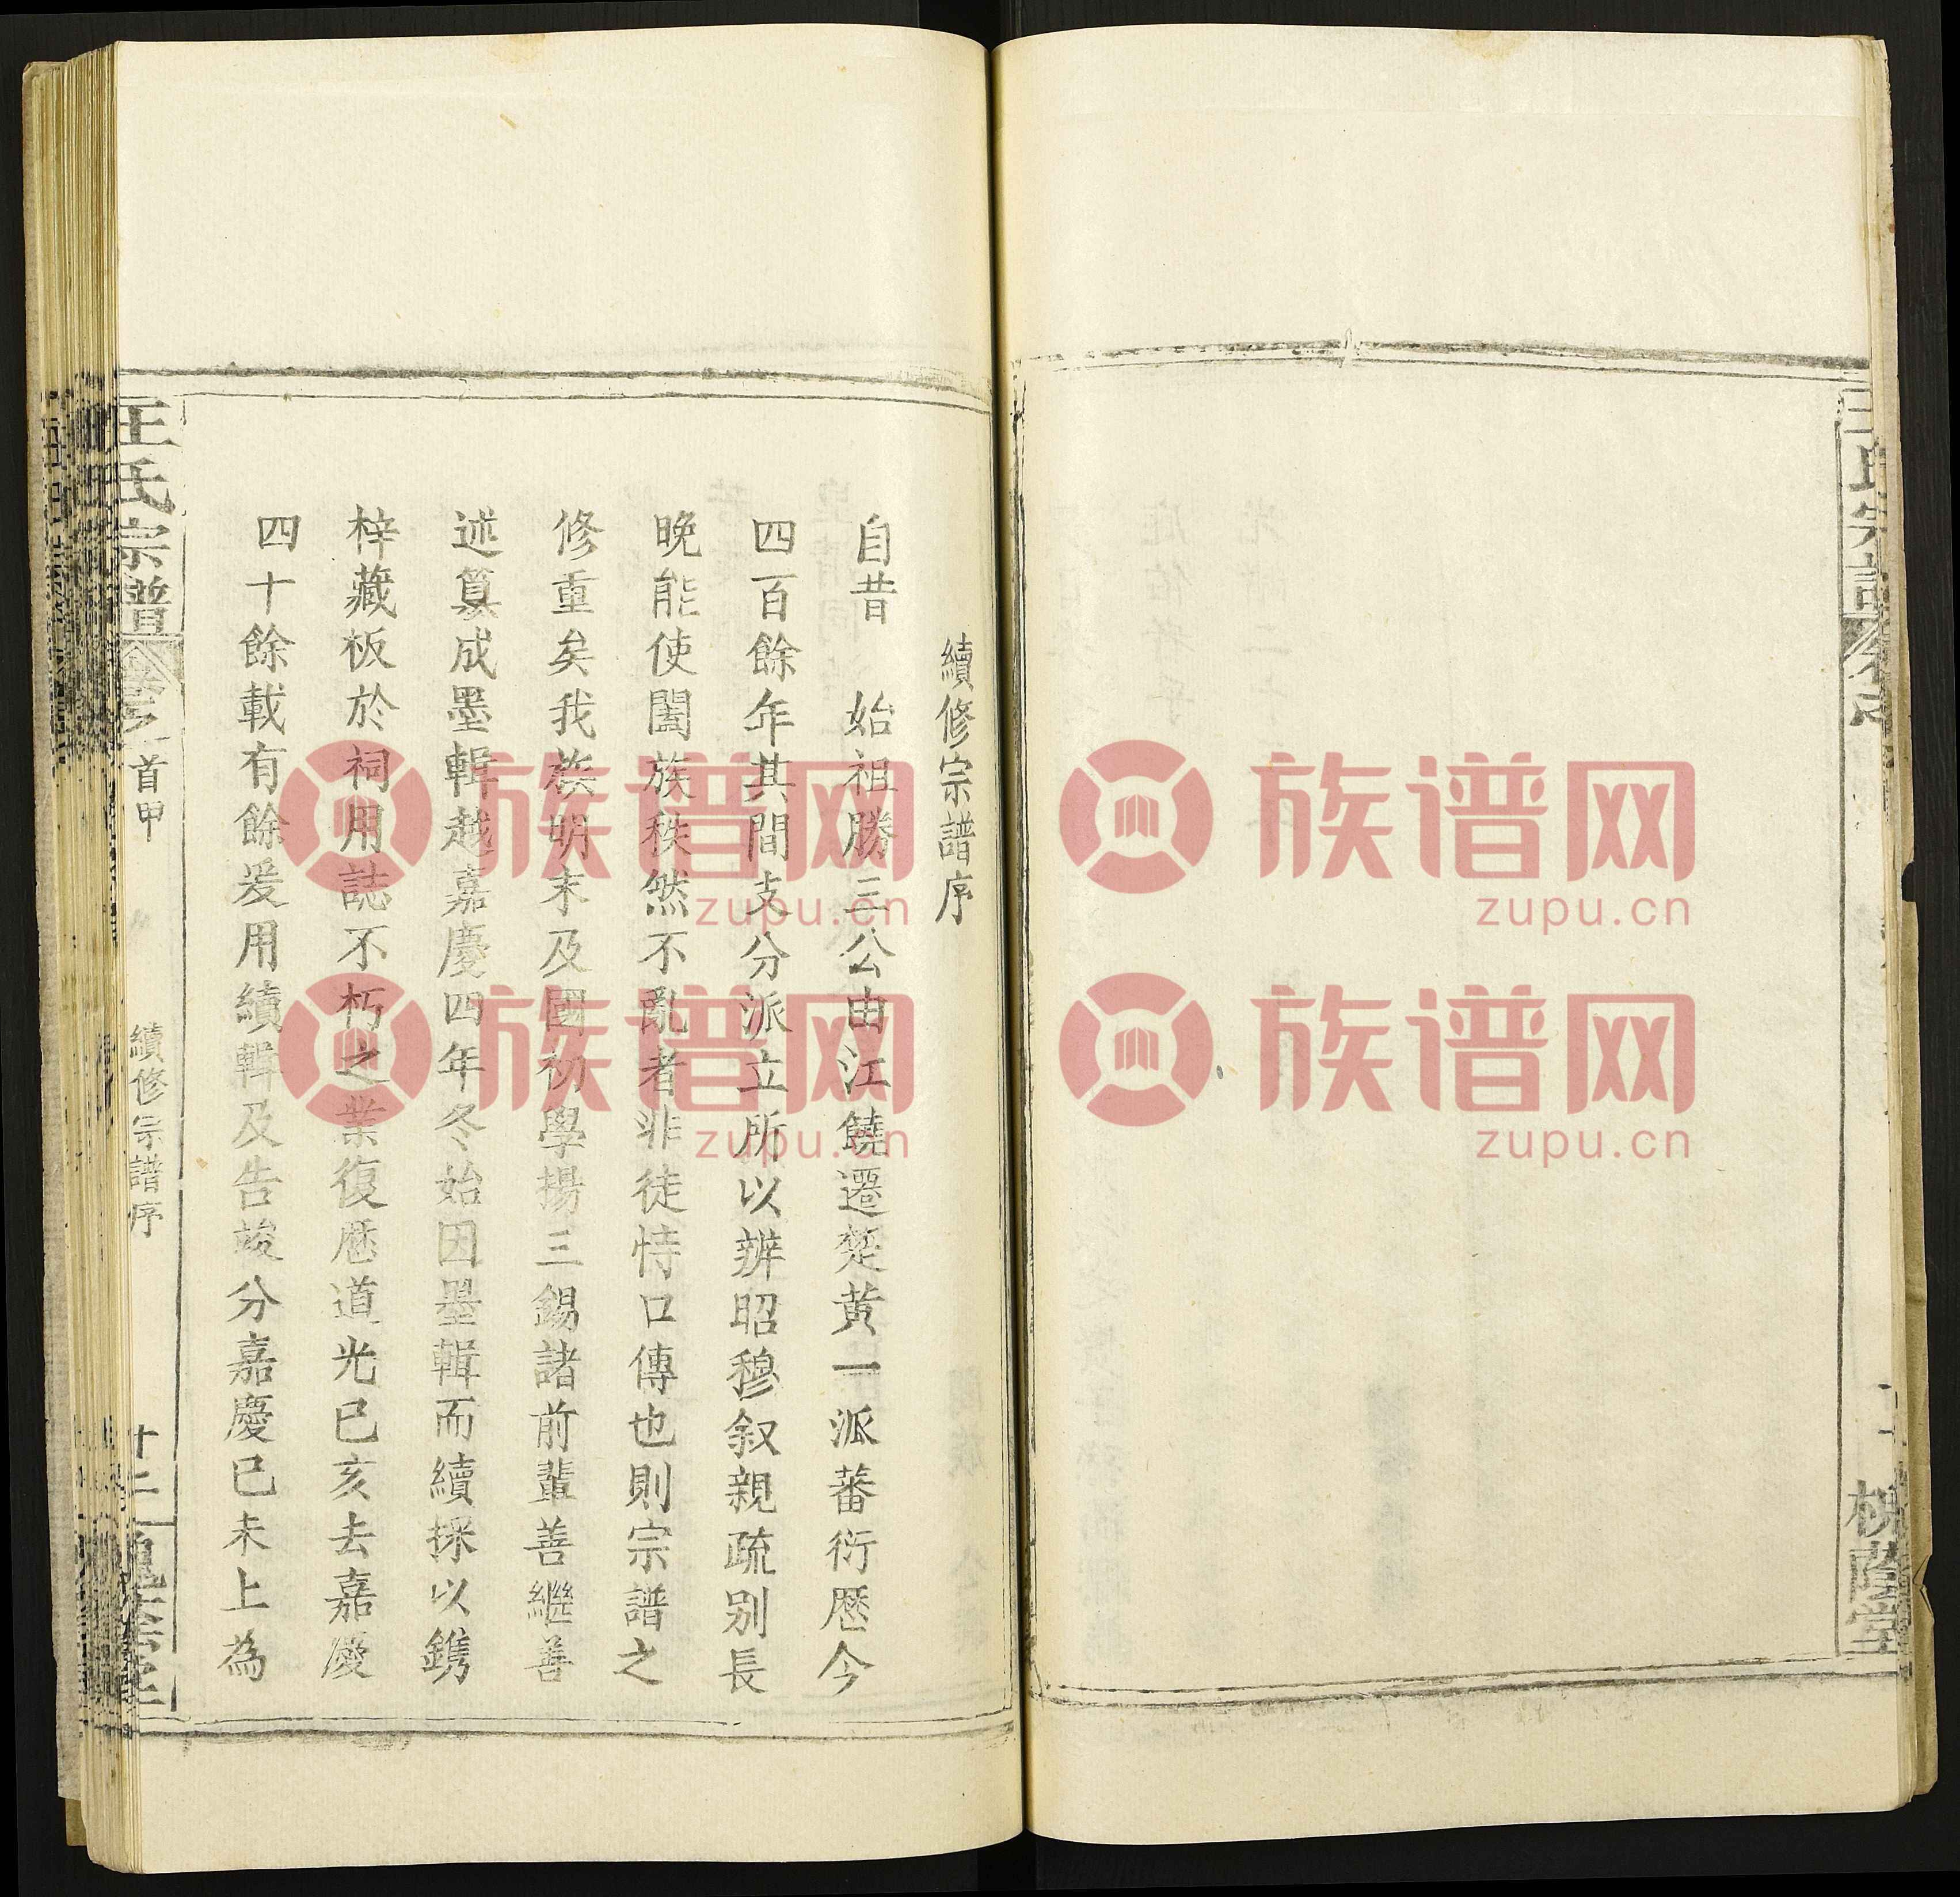 氏宗譜
槐蔭堂
續修宗譜序
自昔　始祖勝三公由江饒遷楚黃一派蕃衍歷今
四百餘年其間支分派立所以辨昭穆叙親疏別長
晚能使闔族秩然不亂者非徒恃口傳也則宗譜之
修重矣我族明末及國初學揚三錫諸前輩善繼善
述篡成墨輯越嘉慶四年冬始因墨輯而續採以鐫
梓藏板於祠用誌不朽之業復歷道光已亥去嘉慶
四十餘載有餘爰用續輯及告竣分嘉慶已未上為
王氏宗譜
卷之首甲
續修宗譜序
十二
槐蔭堂
族谱网
zupu.cn
族谱网
zupu.cn
族谱网
zupu.cn
族谱网
zupu.cn